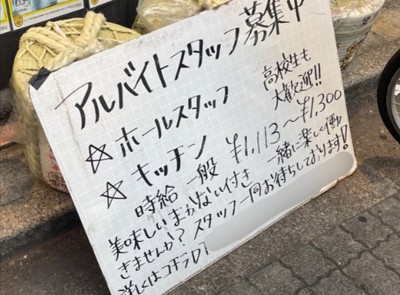 アルバイトスタッフ募集中
☆ ホールスタッフ
高校生も
大歓迎!!
☆ キッチン
時給 一般 ¥1,113～¥1,300
美味しいまかない付き 一緒に楽しく働
きませんか? スタッフ一同お待ちしております!
詳しくはコチラ